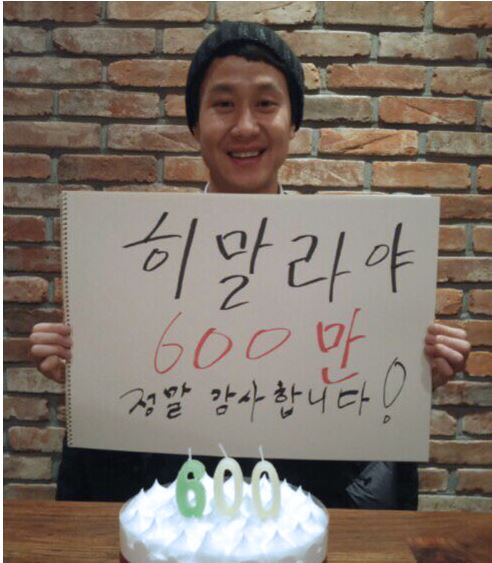 히말라야
600만
정말 감사합니다!
600